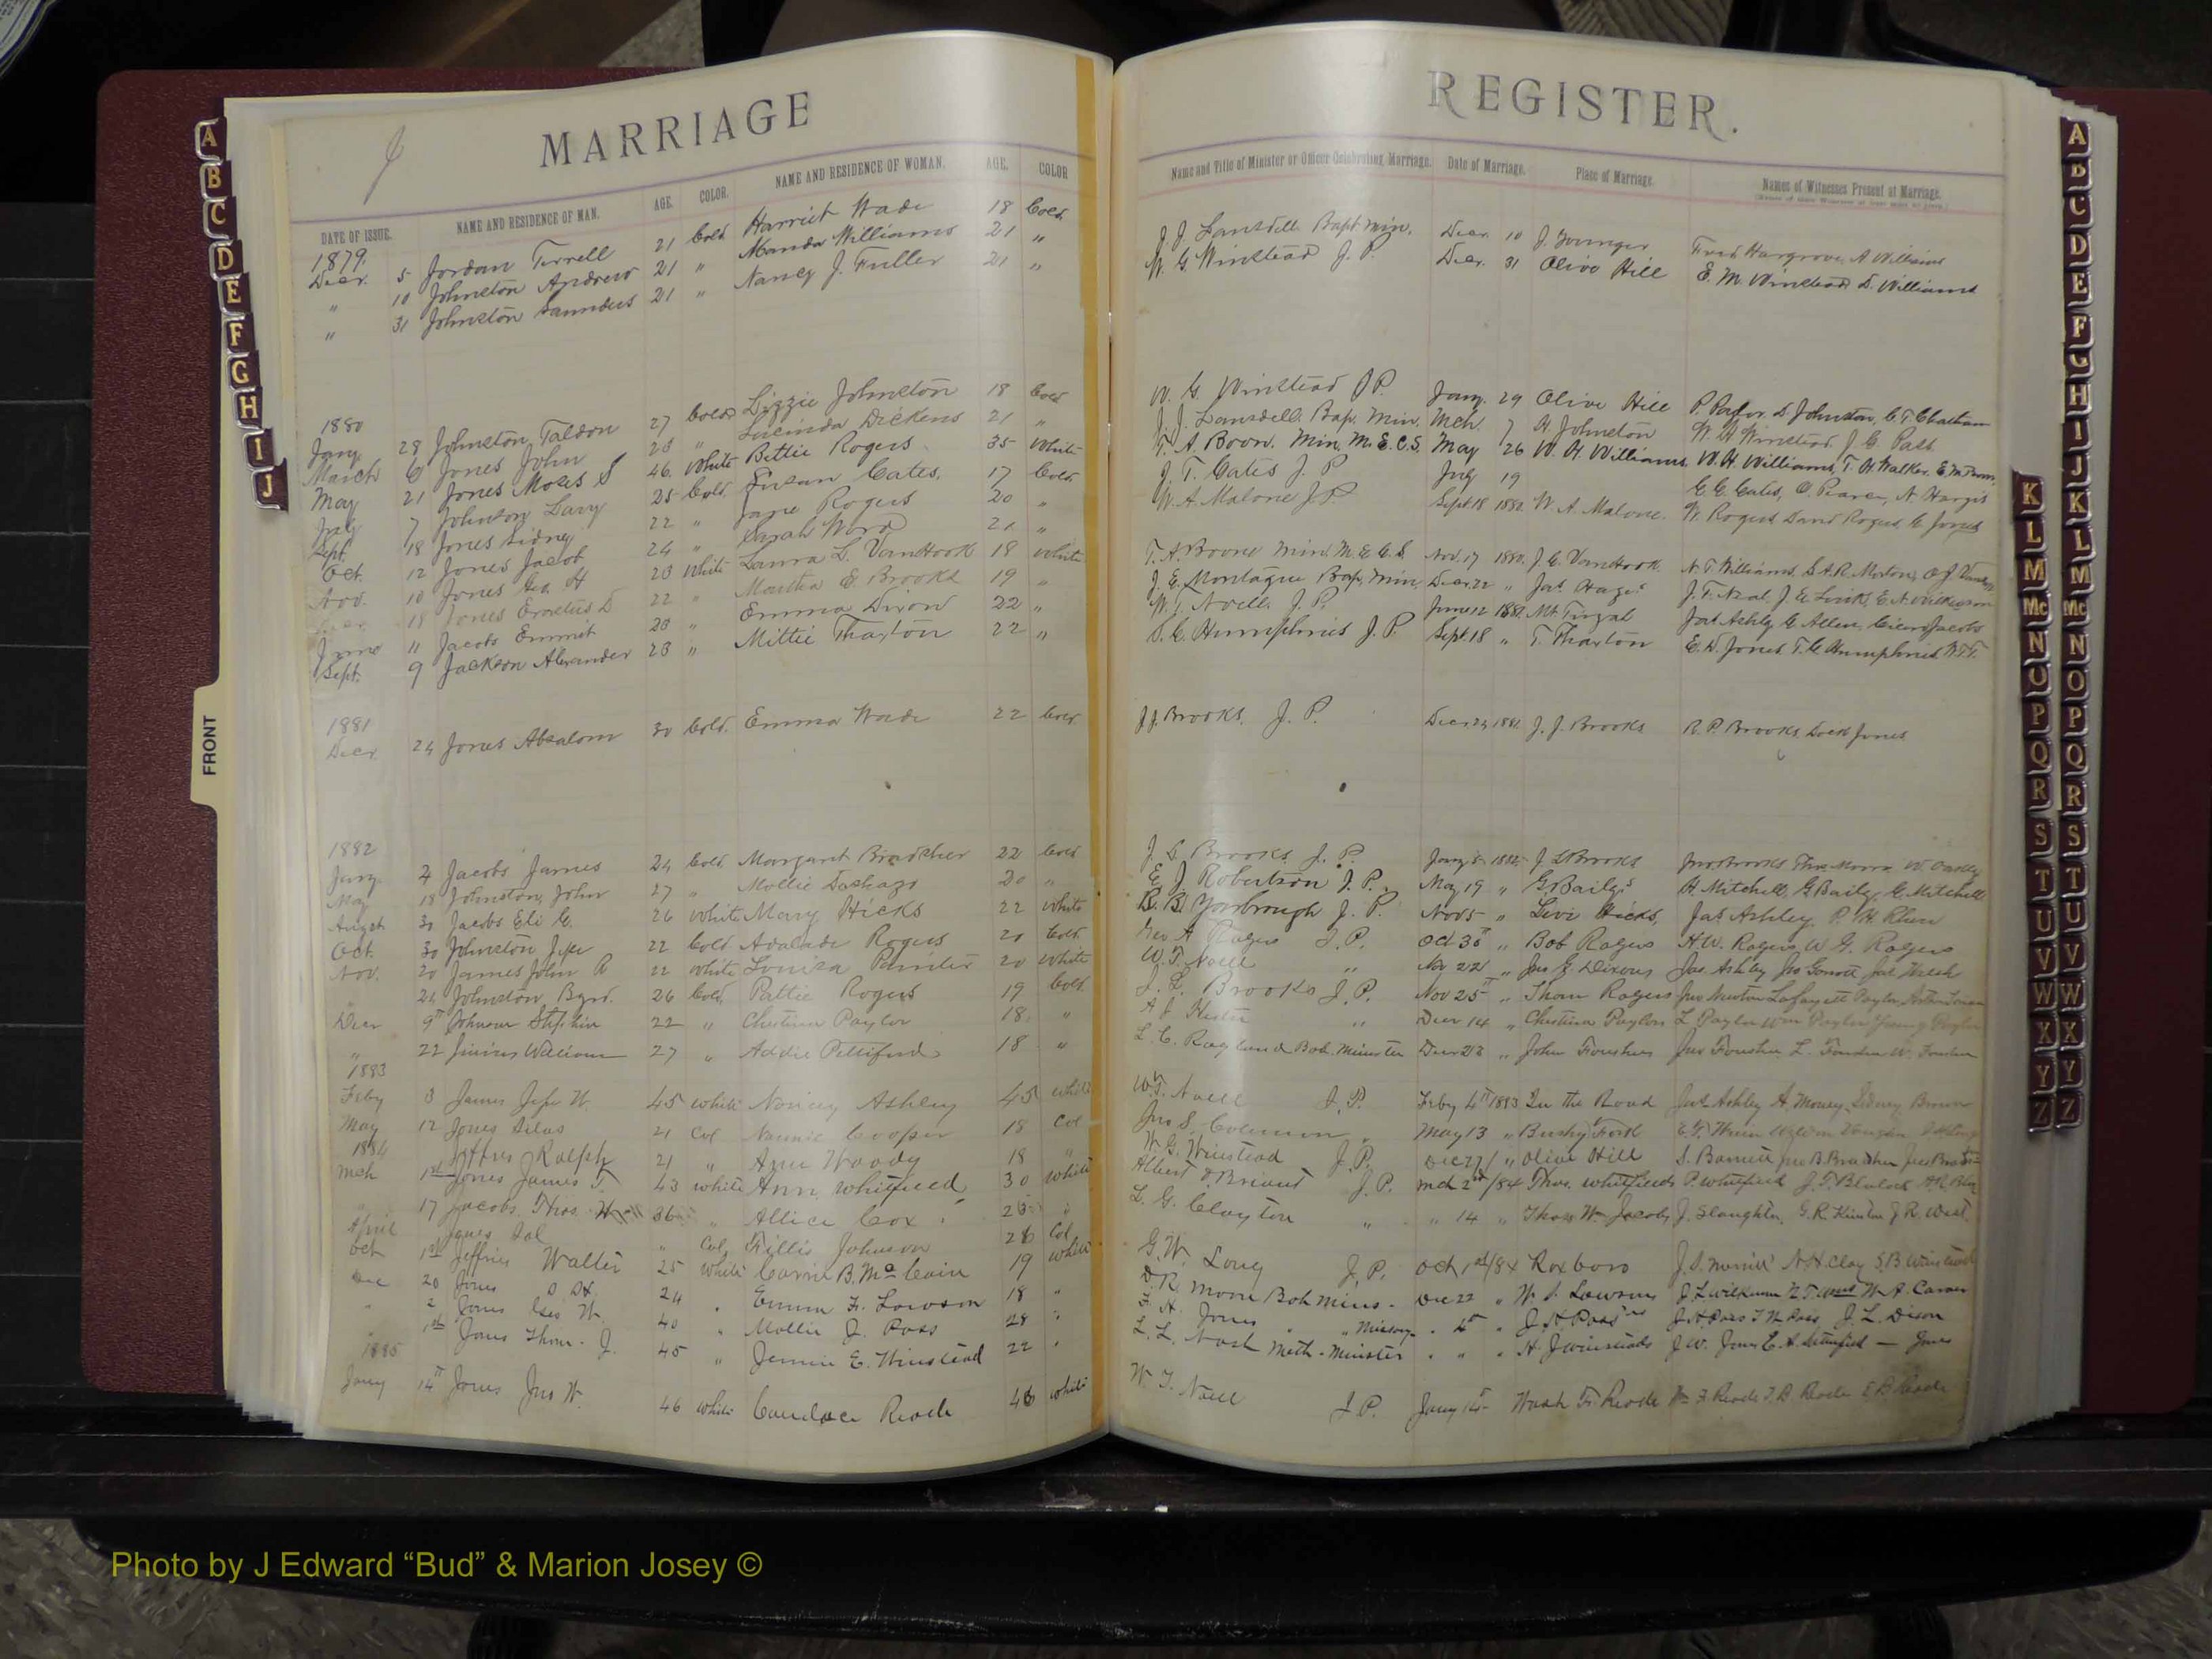 MARRIAGE
REGISTER.
J
DATE OF ISSUE. NAME AND RESIDENCE OF MAN. AGE. COLOR. NAME AND RESIDENCE OF WOMAN. AGE. COLOR
Name and Title of Minister or Officer Celebrating Marriage. Date of Marriage. Place of Marriage. Names of Witnesses Present at Marriage.
1879.
Decr. 5 Jordan Terrell 21 Cold Harriet Wade 18 Cold. J. J. Lansdell Bapt Min. Decr 10 J. Younger Fred Hargrove, A Williams
" 10 Johnston Andrew 21 " Manda Williams 21 " W. G. Winstead J. P. Decr. 31 Olive Hill E. M. Winstead D. Williams
" 31 Johnston Saunders 21 " Nancy J. Fuller 21 "
1880
Jany. 28 Johnston, Taldon 27 Cold Lizzie Johnston 18 Cold W. G. Winstead J P. Jany. 29 Olive Hill D. Johnston, C. T. Chatham
March 6 Jones John 23 " Lucinda Dickens 21 " J. J. Lansdell. Bap. Min. Mch. 7 H. Johnston W. H. Winstead, J. C. Pass
May 21 Jones Moses S 46 White Bettie Rogers 35 White T. A. Boon. Min. M. E. C. S. May 26 W. H. Williams, W. H. Williams, T. H. Walker,
July 7 Johnson Lavy 25 Cold. Susan Cates, 17 Cold. J. T. Cates J. P July 19 C. C. Cates, O. Pearce, N. Hargis
Sept. 18 Jones Sidney 22 " Jane Rogers 20 " W. A. Malone J P Sept. 18 1880. W. A. Malone. W. Rogers David Rogers, G. Jones
Oct. 12 Jones Jacob 24 " Sarah Word 21 "
Nov. 10 Jones Geo. H 23 White Laura L. VanHook 18 White T. A Boone Min. M. E. C. S. Nov. 17 1880. J. C. VanHook. N. T. Williams, S. A. R. Morton,
Decr. 18 Jones Erastus D 22 " Martha E Brooks 19 " J. E. Montague Bap. Min. Decr 22 " Jas. J. T. Neal, J. E. E. N. Wilkerson
June 11 Jacobs Emmit 23 " Emma Dixon 22 " W. T. Noell J. P. June 12 1881. Mt. Tirzah Jas Ashley G Allen, Jacobs
Sept. 9 Jackson Alexander 23 " Mittie Thaxton 22 " S. C. Humphries J. P Sept 18 " T. Thaxton E. D. Jones, T. C. Humphries
1881
Decr 24 Jones Absalom 30 Cold. Emma Wade 22 Cold J. J. Brooks, J. P. Decr 1881. J. J. Brooks R. P. Brooks, Jones
1882
Jany. 4 Jacobs James 24 Cold Margaret Bradsher 22 Cold J. S. Brooks J. P. Jany 5 1882. J S Brooks Jno. Brooks
May 18 Johnston, John 27 " Mollie 20 " E. J Robertson J. P. May 19 " G Baily's H Mitchell, G Baily, G. Mitchell
Augst 30 Jacobs Eli G. 26 White Mary Hicks 22 White B. B. Yarbrough J. P. Nov 5 " Levi Hicks, Jas Ashley,
Oct. 30 Johnston Jeff 22 Cold Adalade Rogers 20 Cold Geo A Rogers J. P. Oct 30 " Bob Rogers H. W. Rogers W G. Rogers
Nov. 20 James John R 22 White Louiza Painter 20 White W. T. Noell " Nov 22 " Jno G. Dixons Jas. Ashley
" 24 Johnston, Byrd. 26 Cold, Pattie Rogers 19 Cold. J. S. Brooks J. P. Nov 25 " Thom Rogers Jno Newton Lafayett Paylor
Decr 9th Johnson Stephen 22 " Chestina Paylor 18 " A J Hester " Decr 14 " Chestina Paylors L Paylor Wm Paylor
" 22 William 27 " Addie Pettiford 18 " L. C. Ragland Bab. Minister Decr 28 " John Foushees Jno Foushee L. Foushee W. Foushee
1883
Feby 3 James Jeff W 45 white Ashley 45 white W. T. Noell J. P. Feby 4th 1883 In the Road Jas Ashley A. Money Sidney
May 12 Jones Silas 21 Col Nannie Cooper 18 Col Jno S. Coleman " May 13 " Bushy Fork
1884
Jeffres Ralph 21 " Woody 18 " W. G. Winstead J. P. Dec 27/ " Olive Hill S. Barnett Jno B. Bradsher
Mch 1st Jones James T. 43 white Ann Whitfield 30 white Albert J. Briant J. P. Mch 2nd /84 Thos. Whitfields P. Whitfield J. T. Blalock
" 17 Jacobs Thos. W 36 " Allice Cox " L. G. Clayton " " 14 " Thos W Jacobs J. Slaughter, G. R. J R. West
April Jones Sol " Col Fillis Johnson 28 Col
Oct 1st Jeffries Walter 25 white Carrie B. McCain 19 white G. W. Long J. P. Oct 1st /84 Roxboro J. S. Merritt N. H. Clay S. B. Winstead
Dec 20 Jones D. H. 24 " Emma F. Lawson 18 " D. R. Moore Bab Minis. Dec 22 " W. S. Lawsons J. L Wilkerson W A. Carver
" 2 Jones Geo W. 40 " Mollie J. Pass 28 " F. H. Jones " Missony " 4th " J. H. Pass' J. H Pass J. L. Dixon
" 1st Jones Thom. J. 45 " Jennie E. Winstead 22 " L. L. Nash Meth. Minister " " " H. J Winsteads J W. Jones
1885
Jany 14th Jones Jno W. 46 white Candace Reade 46 white W. T. Noell J P. Jany Wash F. Reade
A
B
C
D
E
F
G
H
I
J
FRONT
K
L
M
Mc
N
O
P
Q
R
S
T
U
V
W
X
Y
Z
A
B
C
D
E
F
G
H
I
J
K
L
M
Mc
N
O
P
Q
R
S
T
U
V
W
X
Y
Z
Photo by J Edward “Bud” & Marion Josey ©